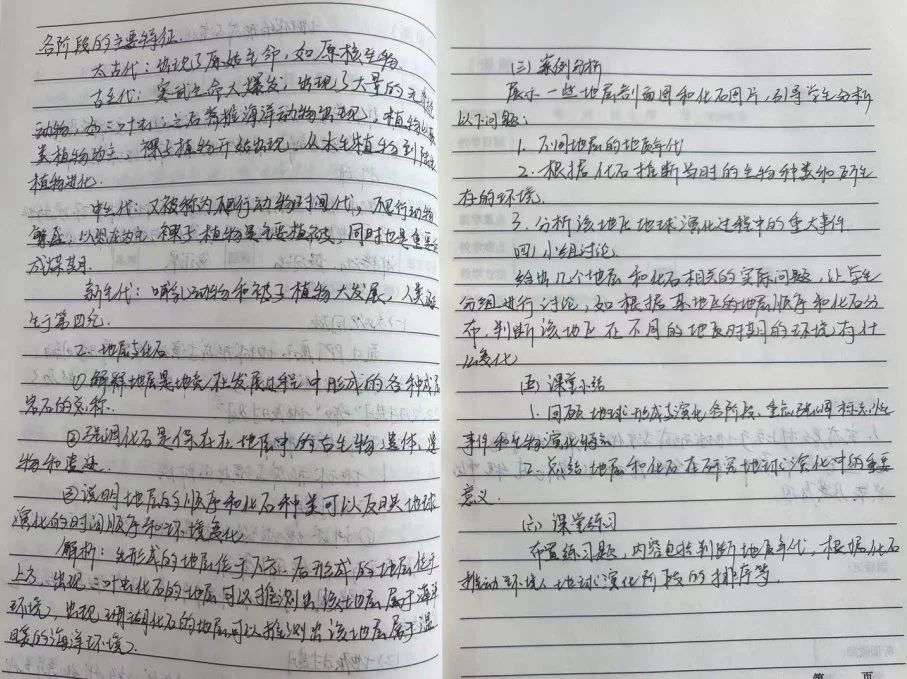 各阶段的主要特征.
太古代：出现了原始生命，如原核生物
古生代：寒武生命大爆发，出现了大量的无脊椎
动物，如三叶虫，之后脊椎海洋动物出现，植物以蕨
类植物为主，裸子植物开始出现，从水生植物到陆生
植物进化.
中生代：又被称为爬行动物时间代，爬行动物
繁盛，以恐龙为主，裸子植物是主要植被，同时也是重要的
成煤期.
新生代：哺乳动物和被子植物大发展，人类诞
生于第四纪.
2. 地层与化石
①解释地层是地壳在发展过程中形成的各种成层
岩石的总称.
②强调化石是保存在地层中的古生物遗体、遗
物和遗迹.
③说明地层的顺序和化石种类可以反映地球
演化的时间顺序和环境变化.
解析：先形成的地层位于下方，后形成的地层位于
上方，出现三叶虫化石的地层可以推测出该地层属于海洋
环境，出现珊瑚化石的地层可以推测出该地层属于温
暖的海洋环境.
(三) 案例分析
展示一些地层剖面图和化石图片，引导学生分析
以下问题：
1. 不同地层的地层年代
2. 根据化石推断当时的生物种类和所生
存的环境.
3. 分析该地区地球演化过程中的重大事件
(四) 小组讨论
给出几个地层和化石相关的实际问题，让学生
分组进行讨论，如根据某地区的地层顺序和化石分
布，判断该地区在不同的地质时期的环境有什
么变化
(五) 课堂小结
1. 回顾地球形成与演化各阶段，重点强调标志性
事件和生物演化
2. 总结地层和化石在研究地球演化中的重要
意义.
(六) 课堂练习
布置练习题，内容包括判断地质年代，根据化石
推动环境、地球演化阶段的排序等.
第 页